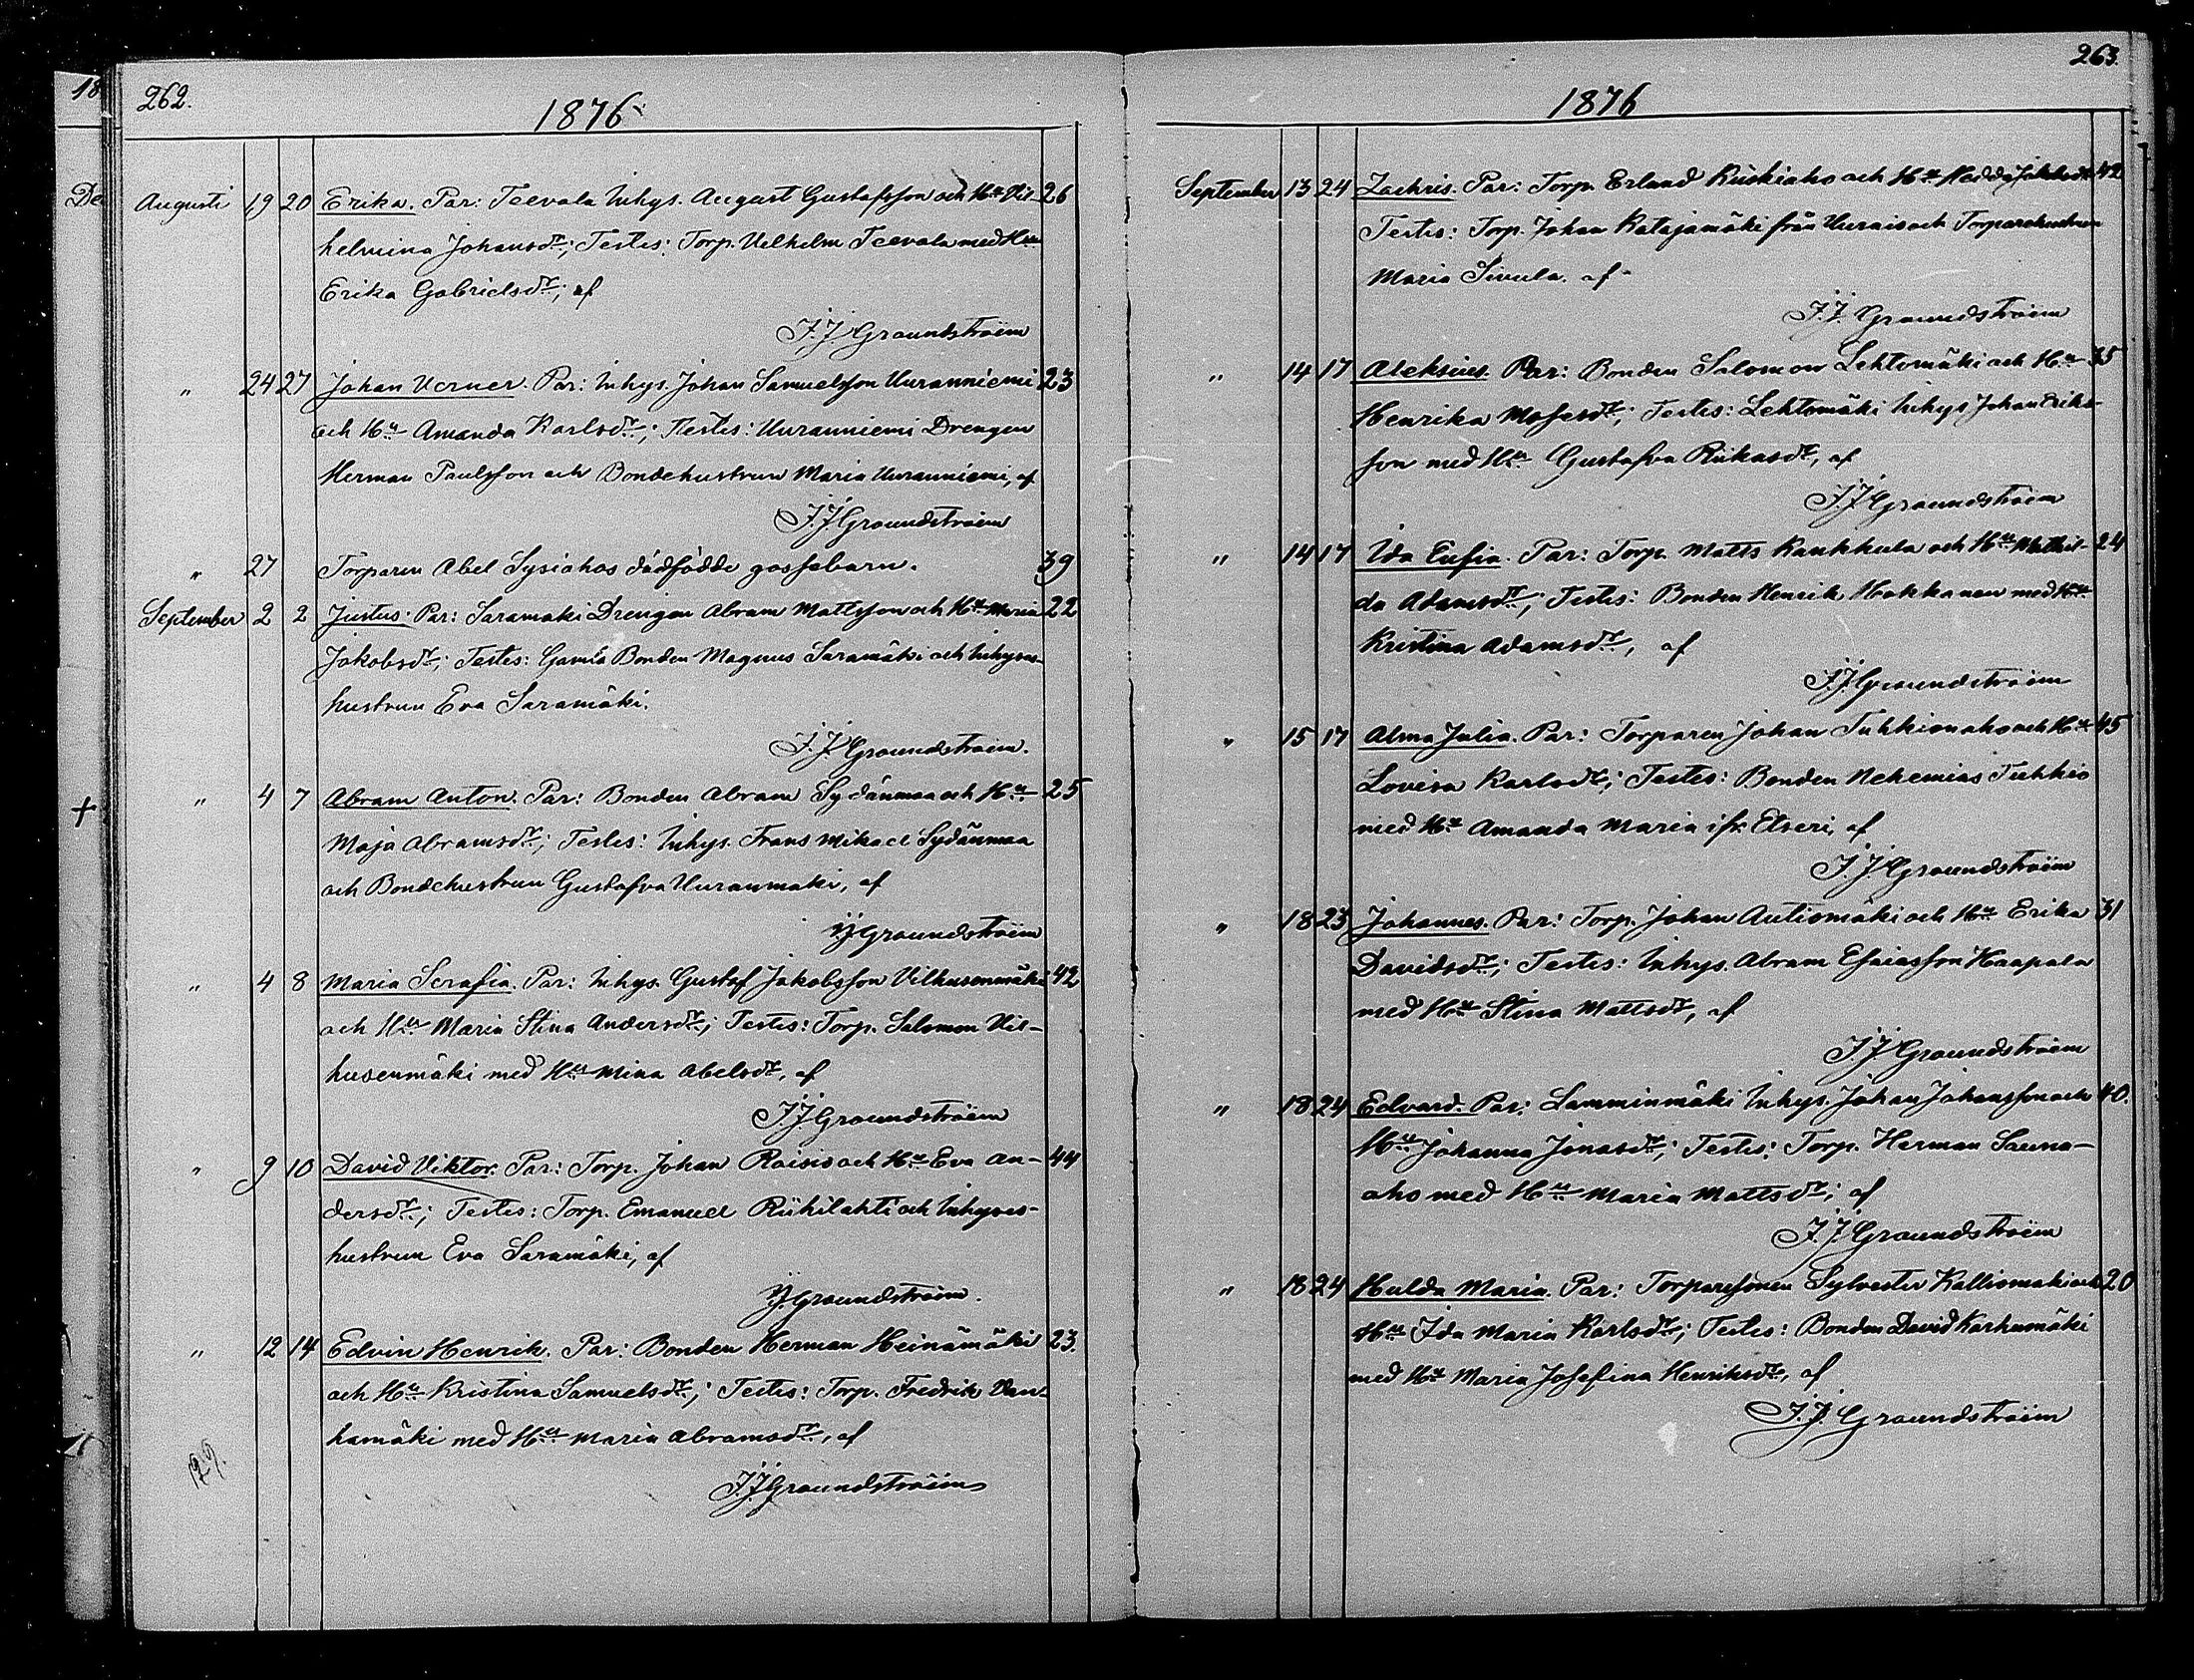 262.
1876
Augusti 19 20 Erika. Par: Teevala Inhys. August Gustafsson och Hu Vil- 26
helmina Johansdr; Testes: Torp. Vilhelm Teevala med Hu
Erika Gabrielsdr; af
J.J. Groundströim
" 24 27 Johan Verner. Par: Inhys. Johan Samuelsson Uuranniemi 23
och Hu Amanda Karlsdr; Testes: Uuranniemi Drengen
Herman Paulsson och Bondehustrun Maria Uuranniemi, af
J.J. Groundströim
" 27 Torparen Abel Sysiahos dödfödde gossebarn. 39
September 2 2 Justus. Par: Saramäki Drengen Abram Mattsson och Hu Maria 22
Jakobsdr; Testes: Gamla Bonden Magnus Saramäki och Inhyses-
hustrun Eva Saramäki.
J.J. Groundströim.
" 4 7 Abram Anton. Par: Bonden Abram Sydänmaa och Hu 25
Maja Abramsdr; Testes: Inhys. Frans Mikael Sydänmaa
och Bondehustrun Gustafva Uuranmäki, af
JJ Groundströim
" 4 8 Maria Serafia. Par: Inhys. Gustaf Jakobsson Vilhusenmäki 42
och Hu Maria Stina Andersdr; Testes: Torp. Salomon Vil-
husenmäki med Hu Mina Abelsdr, af
J.J. Groundströim
" 9 10 David Viktor. Par: Torp. Johan Raisio och Hu Eva An- 44
dersdr; Testes: Torp. Emanuel Riihilahti och Inhyses-
hustrun Eva Saramäki, af
JJ Groundströim.
" 12 14 Edvin Henrik. Par: Bonden Herman Heinämäki 23.
och Hu Kristina Samuelsdr; Testes: Torp. Fredrik Van-
hamäki med Hu Maria Abramsdr, af
J.J. Groundströim
263.
1876
September 13 24 Zachris. Par: Torp. Erland Ruskiaho och Hu 42
Testes: Torp. Johan Katajamäki från Uurais och Torparehustrun
Maria Sivula. af
J.J. Groundströim
" 14 17 Aleksius. Par: Bonden Salomon Lehtomäki och Hu 35
Henrika Mosesdr; Testes: Lehtomäki Inhys Johan Eriks-
son med Hu Gustafva Riikasdr, af
J.J. Groundströim
" 14 17 Ida Eufia. Par: Torp. Matts Kaukkula och Hu Mathil- 24
da Adamsdr; Testes: Bonden Henrik Hokkanen med Hu
Kristina Adamsdr, af
J.J. Groundströim
" 15 17 Alma Julia. Par: Torparen Johan Tuhkionaho och Hu 45
Lovisa Karlsdr; Testes: Bonden Nehemias Tuhkio
med Hu Amanda Maria ifr. Etseri, af
J.J. Groundströim
" 18 23 Johannes. Par: Torp. Johan Autiomäki och Hu Erika 31
Davidsdr; Testes: Inhys. Abram Esaiasson Haapala
med Hu Stina Mattsdr, af
J.J. Groundströim
" 18 24 Edvard. Par: Lamminmäki Inhys. Johan Johansson och 40.
Hu Johanna Jonasdr; Testes: Torp. Herman Sauna-
aho med Hu Maria Mattsdr; af
J.J. Groundströim
" 18 24 Hulda Maria. Par: Torparesonen Sylvester Kalliomäki och 20
Hu Ida Maria Karlsdr; Testes: Bonden David Karhumäki
med Hu Maria Josefina Henriksdr, af
J.J. Groundströim